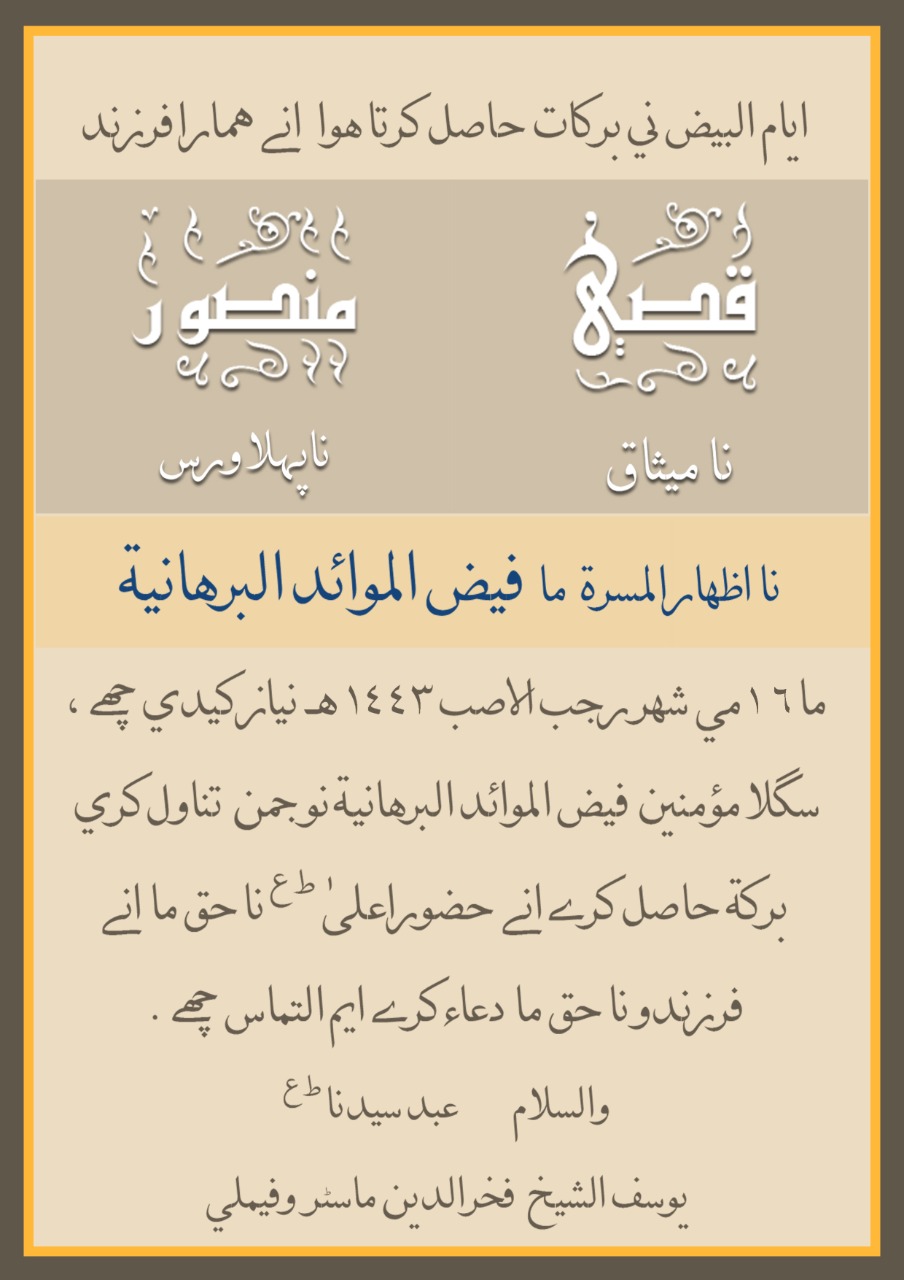 ايام البيض ني بركات حاصل كرتا هوا انے همارا فرزند
قصي
منصور
نا ميثاق
نا پہلا ورس
نا اظهار المسرة ما فيض الموائد البرهانية
ما ١٦ مي شهر رجب الاصب ١٤٤٣ هـ نياز كيدي چھے ،
سگلا مؤمنين فيض الموائد البرهانية نو جمن تناول كري
بركة حاصل كرے انے حضور اعلىٰ ط ع نا حق ما انے
فرزندو نا حق ما دعاء كرے ايم التماس چھے .
والسلام عبد سيدنا ط ع
يوسف الشيخ فخر الدين ماسٹر وفيملي